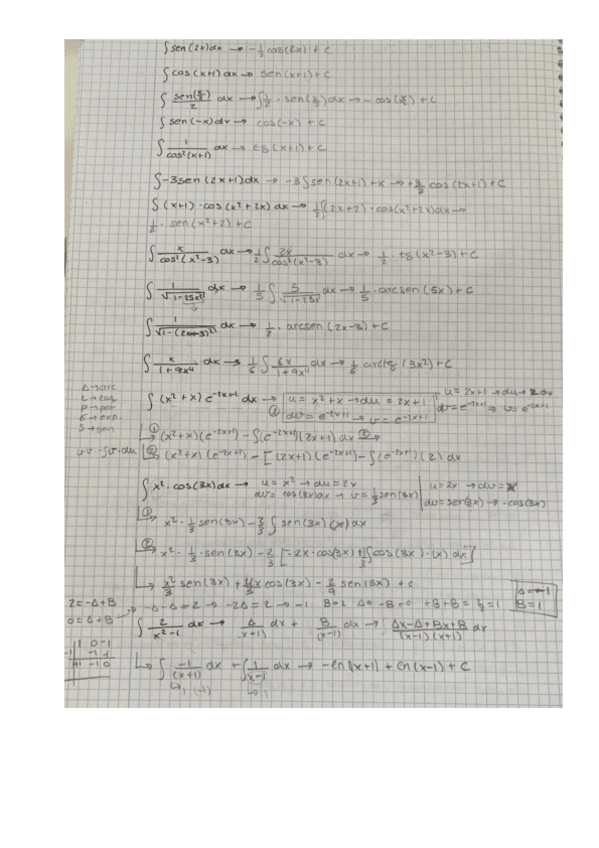 ∫ sen(2x)dx → -½ cos(2x) + C
∫ cos(x+1) dx → sen(x+1) + C
∫ sen(x/2)/2 dx → ∫ ½ · sen(x/2) dx → - cos(x/2) + C
∫ sen(-x) dx → cos(-x) + C
∫ 1/cos²(x+1) dx → tg(x+1) + C
∫ -3sen(2x+1)dx → -3∫ sen(2x+1) + K → +3/2 cos(2x+1) + C
∫ (x+1) · cos(x²+2x) dx → ½∫(2x+2) · cos(x²+2x)dx →
½ · sen(x²+2) + C
∫ x/cos²(x²-3) dx → ½ ∫ 2x/cos²(x²-3) dx → ½ · tg(x²-3) + C
∫ 1/√(1-25x²) dx → 1/5 ∫ 5/√(1-25x²) dx → 1/5 · arcsen(5x) + C
∫ 1/√(1-(2x-3)²) dx → ½ · arcsen(2x-3) + C
∫ x/(1+9x⁴) dx → 1/6 ∫ 6x/(1+9x⁴) dx → 1/6 arctg(3x²) + C
A → arc
L → log
P → por
E → exp.
S → sen
∫ (x²+x) e^(-2x+1) dx → ① u = x²+x → du = 2x+1
dv = e^(-2x+1) → v = e^(-2x+1)
u = 2x+1 → du → 2dx
dv = e^(-2x+1) → v = e^(-2x+1)
① (x²+x)(e^(-2x+1)) - ∫(e^(-2x+1))(2x+1) dx ②
u·v - ∫v · du
② (x²+x)(e^(-2x+1)) - [(2x+1)(e^(-2x+1)) - ∫(e^(-2x+1))(2) dx
∫ x² · cos(3x)dx → u = x² → du = 2x
dv = cos(3x)dx → v = ⅓ sen(3x)
u = 2x → du =
dv = sen(3x) → -cos(3x)
① x² · ⅓ sen(3x) - ⅔ ∫ sen(3x)(x) dx
② x² · ⅓ · sen(3x) - ⅔ [-2x · cos(3x) + ∫cos(3x) · (x) dx]
x²/3 sen(3x) + x cos(3x) - 2/9 sen(3x) + C
2 = -A+B → -A-A = 2 → -2A = 2 → -1 B=2
0 = A+B
A = -1
B = 1
∫ 2/(x²-1) dx → A/(x+1) dx + B/(x-1) dx → ∫ (Ax-A+Bx+B)/((x-1)(x+1)) dx
∫ -1/(x+1) dx + ∫ 1/(x-1) dx → -ln|x+1| + ln(x-1) + C